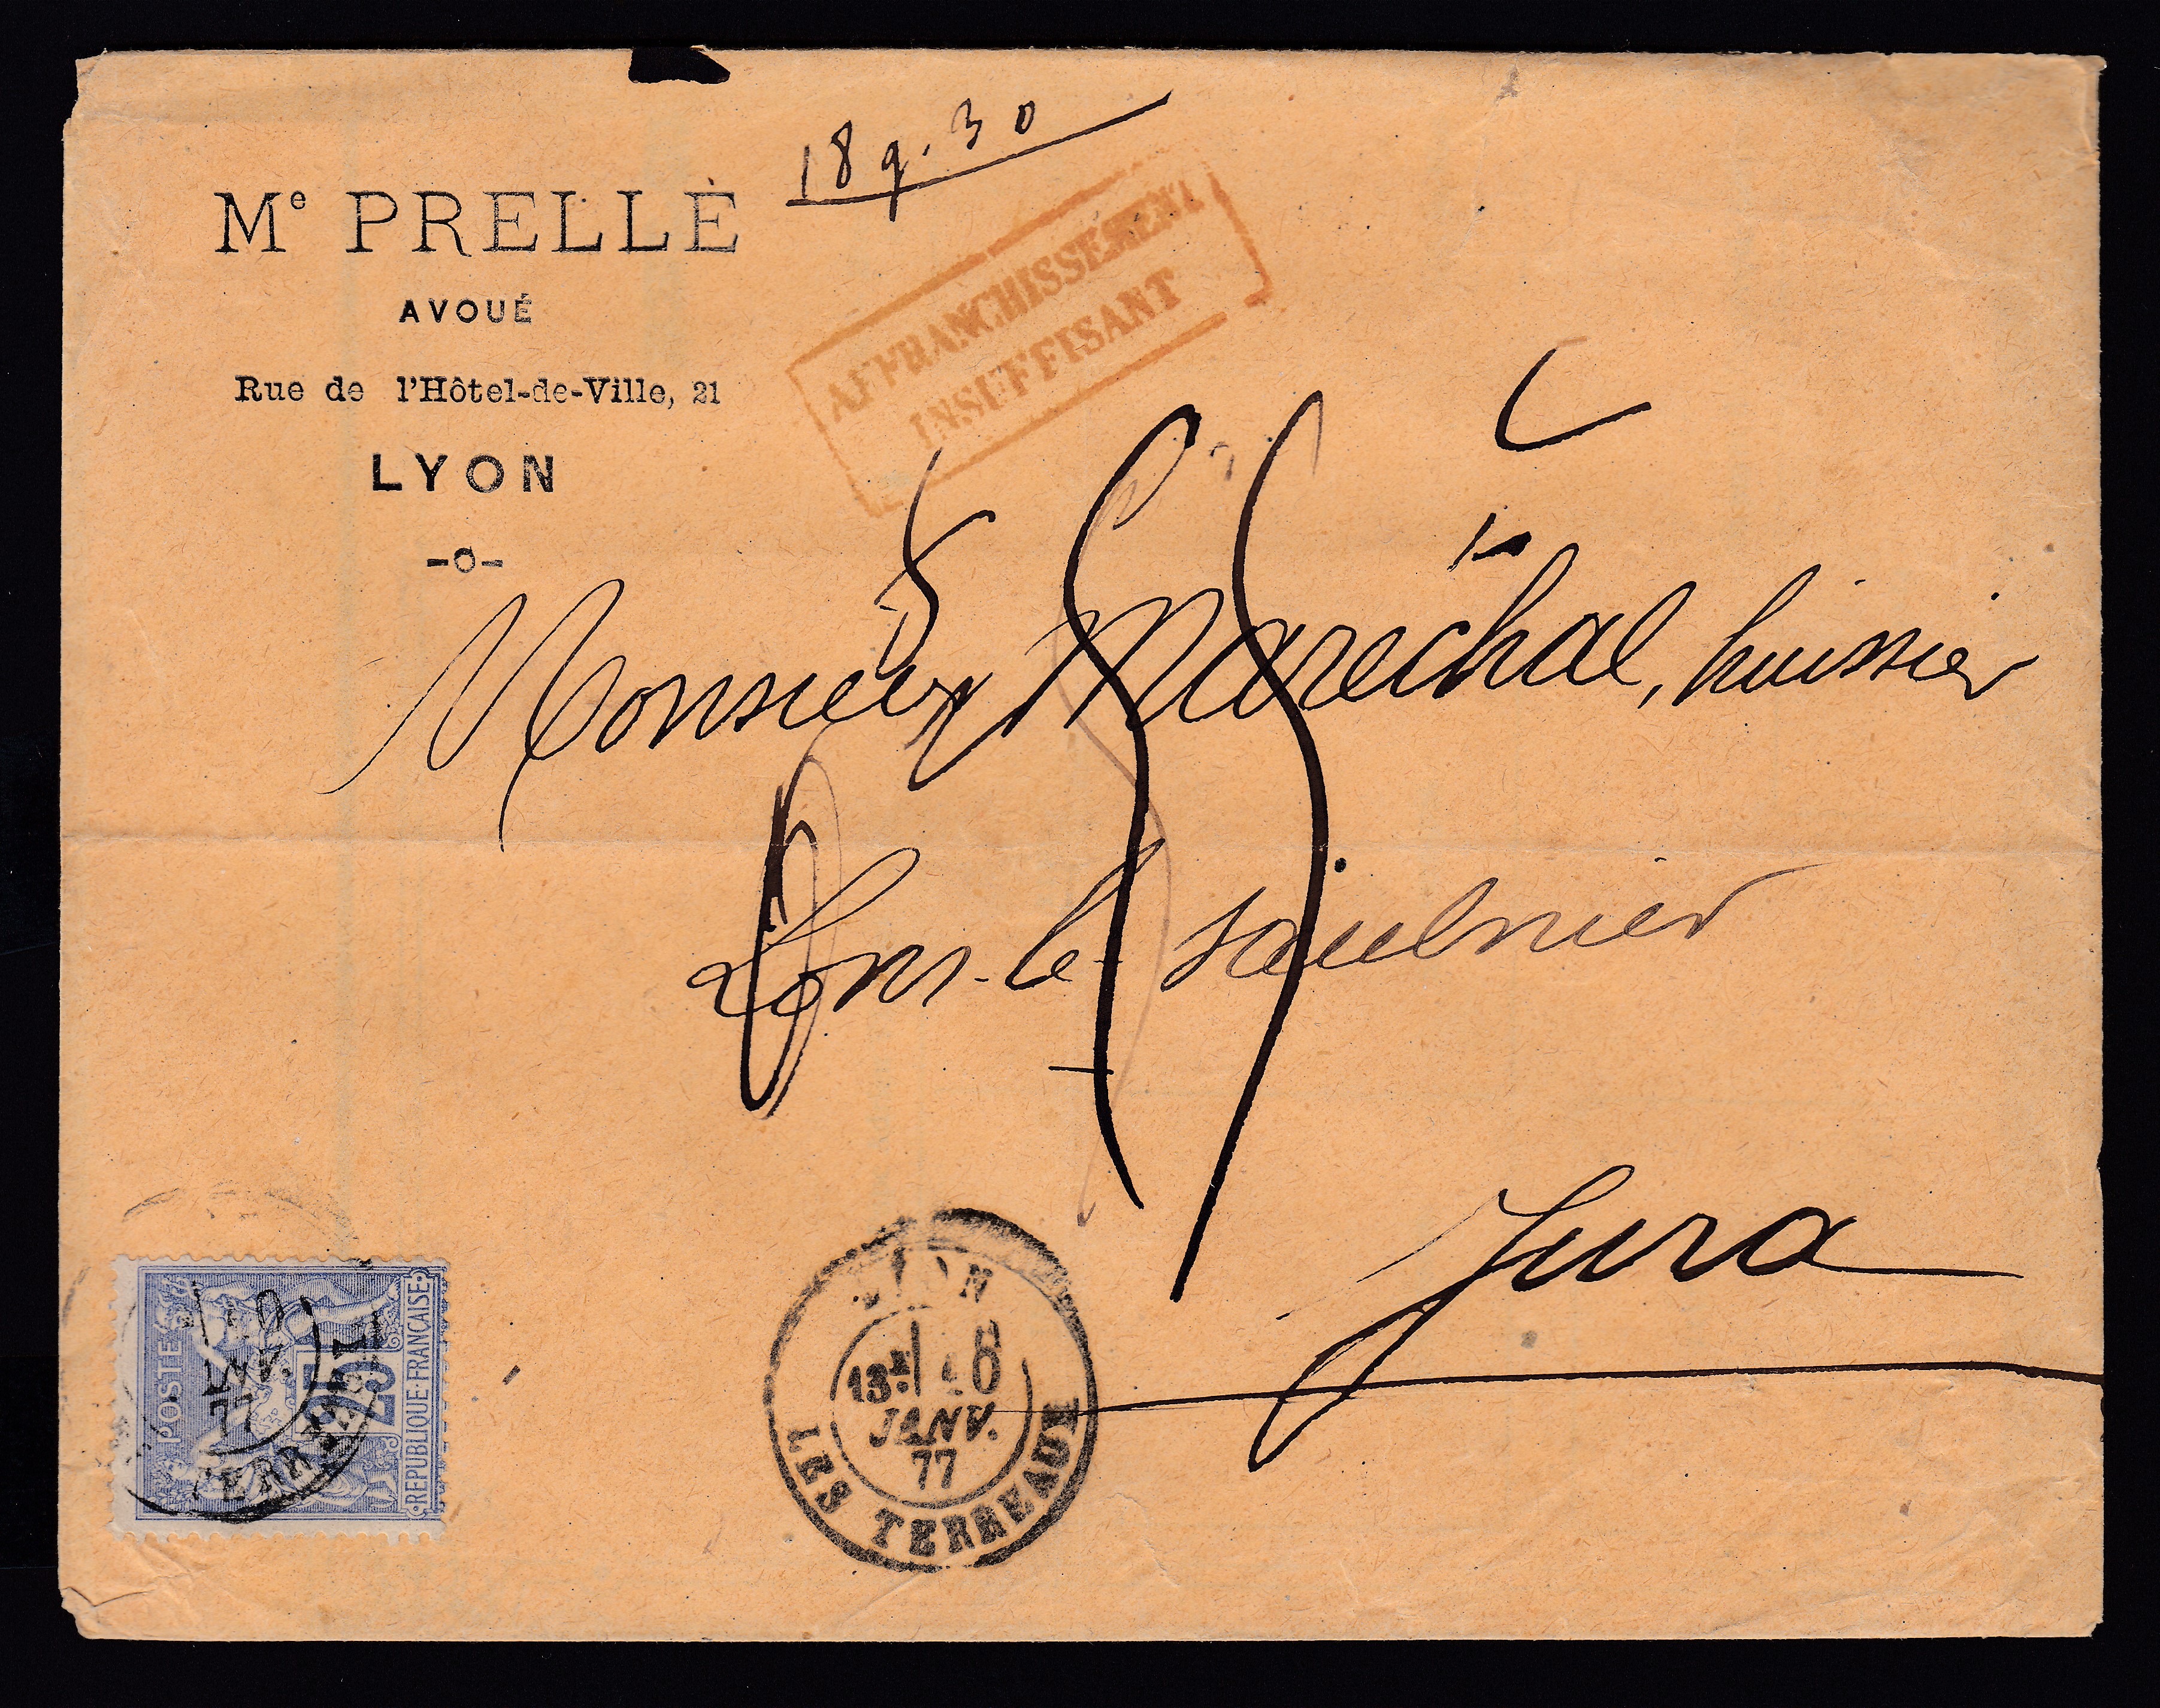 18 g. 30
Me PRELLE
AVOUÉ
Rue de l'Hôtel-de-Ville, 21
LYON
-o-
AFFRANCHISSEMENT
INSUFFISANT
Monsieur Marechal, huissier
Lons-le-saulnier
Jura
POSTE
25
REPUBLIQUE FRANÇAISE
JANV.
77
TERREAUX
LYON
13E
JANV.
77
LES TERREAUX